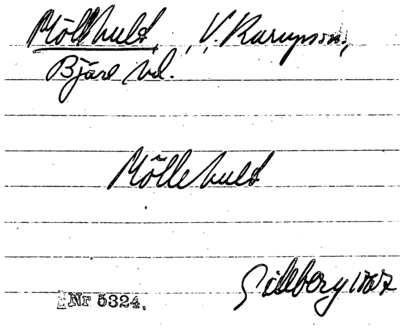 Möllhult, V. Karupsn,
Bjäre hd.
Möllehult
Gillberg 1767
Nr 5324.